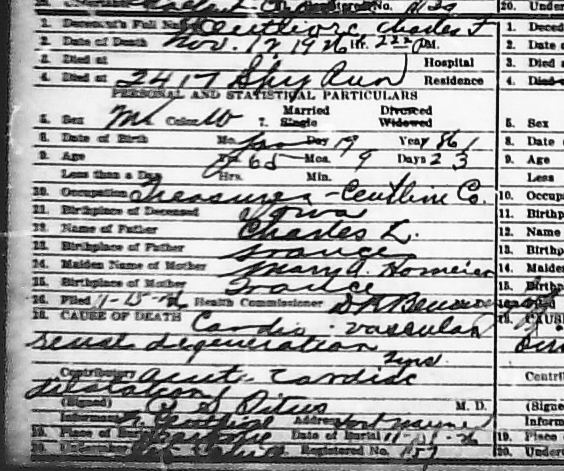 Registered No. 20. Under
1. Deceased's Full Name Centlivre, Charles F 1. Deced
2. Date of Death Nov. 12 1926 Hr. 2 20 P.M. 2. Date
3. Died at Hospital 3. Died a
4. Died at 2417 Spy Run Residence 4. Died
PERSONAL AND STATISTICAL PARTICULARS
5. Sex M Color W 7. Married Single Divorced Widowed 5. Sex
8. Date of Birth Mo. Jan Day 19 Year 861 8. Date
9. Age Yr. 65 Mos. 9 Days 23 9. Age
Less than a Day Hrs. Min. Less
10. Occupation Treasurer - Centlivre Co. 10. Occup
11. Birthplace of Deceased Iowa 11. Birthp
12. Name of Father Charles L. 12. Name
13. Birthplace of Father France 13. Birthp
14. Maiden Name of Mother Mary A. Homeier 14. Maide
15. Birthplace of Mother France 15. Birthp
16. Filed 11-15-26 Health Commissioner
18. CAUSE OF DEATH Cardio-vascular 18. CAUS
renal degeneration
Contributory Acute Cardiac Contri
dilatation
(Signed) M. D. (Signe
Informant Address Fort Wayne Inform
19. Place of Burial Date of Burial 11- -26 19. Place
20. Undertaker Registered No. 20. Under